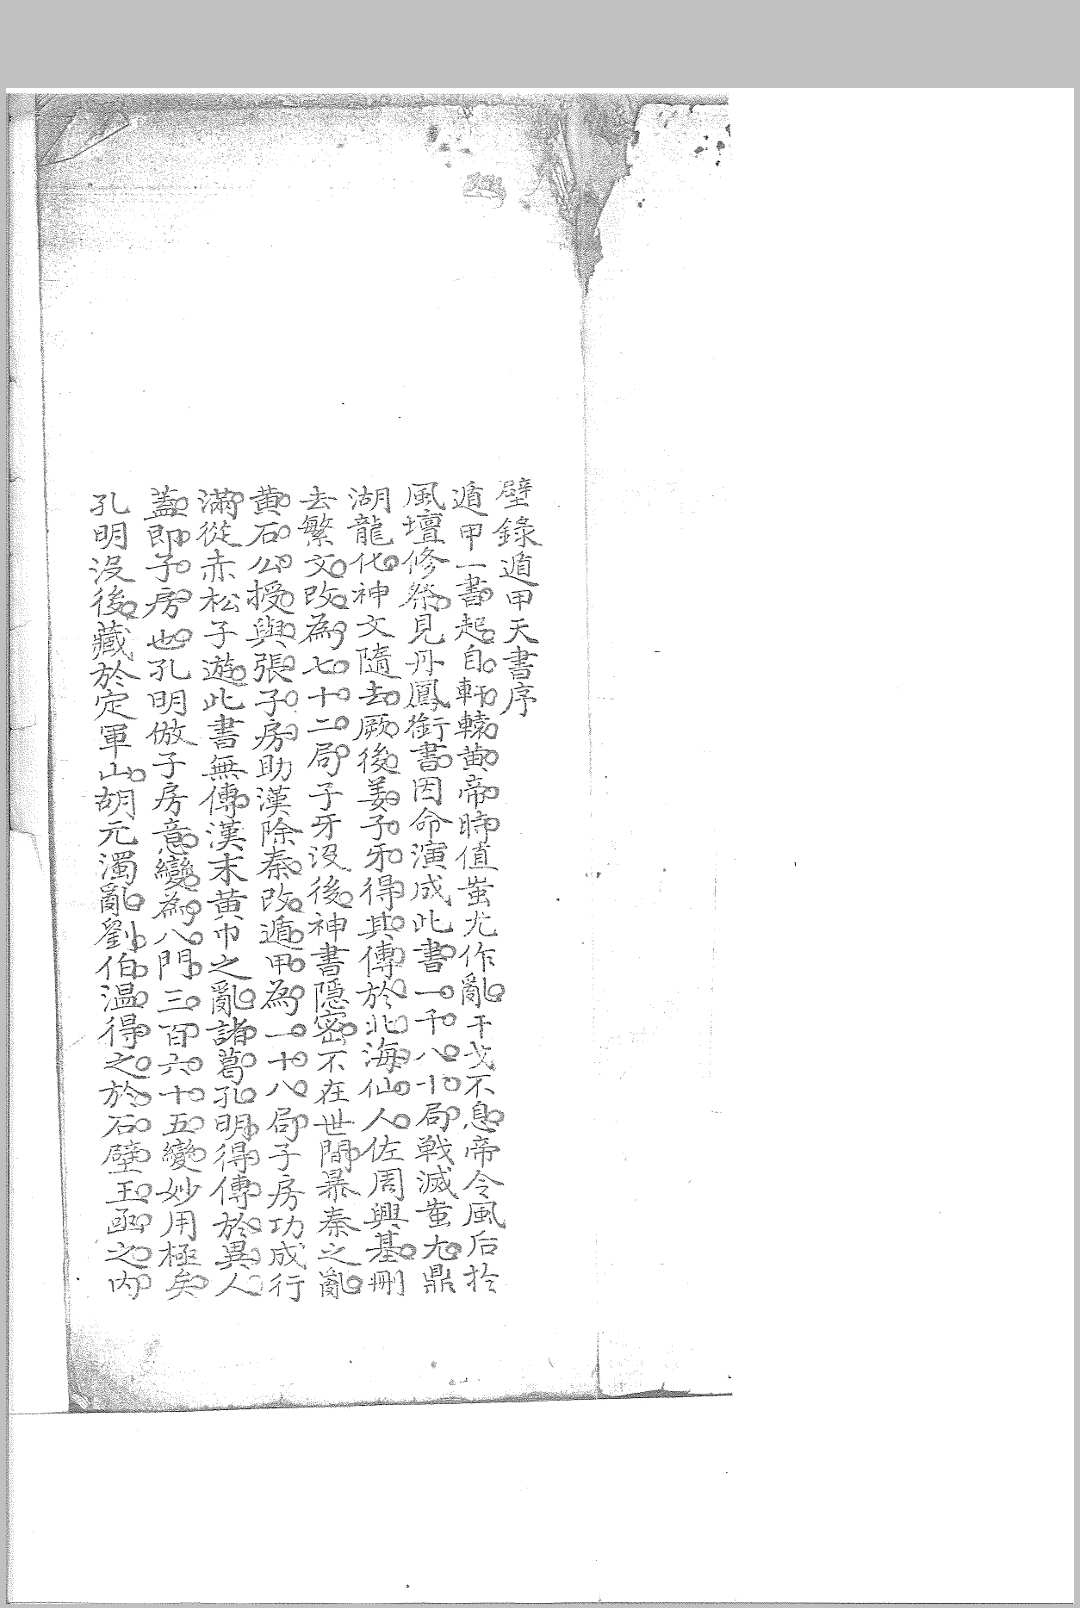 壁錄遁甲天書序
遁甲一書起自軒轅黃帝時值蚩尤作亂干戈不息帝令風后於
風壇修祭見丹鳳銜書因命演成此書一千八十局戰滅蚩尤鼎
湖龍化神文隨去厥後姜子牙得其傳於北海仙人佐周興基刪
去繁文改為七十二局子牙沒後神書隱密不在世間暴秦之亂
黃石公授與張子房助漢除秦改遁甲為一十八局子房功成行
滿從赤松子遊此書無傳漢末黃巾之亂諸葛孔明得傳於異人
蓋即子房也孔明倣子房意變為八門三百六十五變妙用極矣
孔明沒後藏於定軍山胡元濁亂劉伯温得之於石壁玉函之內